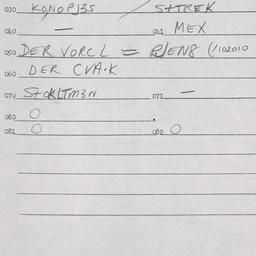 030 KONOPJ35 / S+TREK
040 — 041 MEX
050 DER VORCL = @JEN8 (/102010
060 DER CVA·K
070 StOKLTM3N 071 —
080 O
081 O 082 O